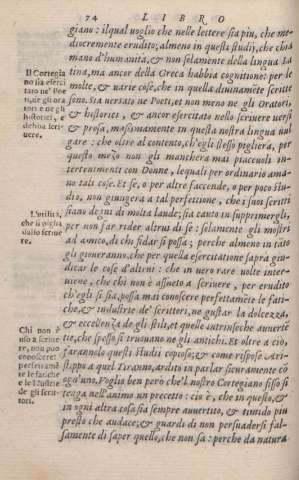 74 LIBRO
giano: ilqual uoglio che nelle lettere sia piu, che me
diocremente erudito; almeno in questi studij, che chia
mano d'humanità, & non solamente della lingua La
tina, ma ancor della Greca habbia cognitione: per le
molte, & uarie cose, che in quella diuinamẽte scritte
sono. Sia uersato ne Poeti, et non meno ne gli Oratori,
& historici, & ancor esercitato nello scriuere uersi
& prosa, massimamente in questa nostra lingua uul-
gare: che oltre al contento, ch'egli stesso piglierà, per
questo mezo non gli mancherà mai piaceuoli in-
tertenimenti con Donne, lequali per ordinario ama-
no tali cose. Et se, o per altre faccende, o per poco stu-
dio, non giungerà a tal perfettione, che i suoi scritti
siano degni di molta laude; sia cauto in supprimergli,
per non far rider altrui di se: solamente gli mostri
ad amico, di chi fidar si possa; perche almeno in tãto
gli gioueranno, che per quella esercitatione saprà giu-
dicar le cose d'altrui: che in uero rare uolte inter-
uiene, che chi non è assueto a scriuere, per erudito
ch'egli si sia, possa mai conoscere perfettamẽte le fati-
che, & industrie de' scrittori, ne gustar la dolcezza,
& eccellenza de gli stili, et quelle intrinseche auuertẽ
tie, che spesso si truouano ne gli antichi. Et oltre a ciò,
farannolo questi studij copioso; & come rispose Ari-
stippo a quel Tiranno, ardito in parlar sicuramente cõ
ogn'uno. Voglio ben però che'l nostro Cortegiano fisso si
tenga nell'animo un precetto: cio è, che in questo, &
in ogni altra cosa sia sempre auuertito, & timido piu
presto che audace; & guardi di non persuadersi fal-
samente di saper quello, che non sa: perche da natura
Il Cortegia
no sia eserci
tato ne' Poe
ti, de gli ora
tori e ne gli
historici, e
debba scri-
uere.
L'utilità,
che si piglia
dallo scriue
re.
Chi non è
uso a scriue
re, non può
conoscere
perfettamẽ
te le fatiche
e le industrie
de gli scrit-
tori.